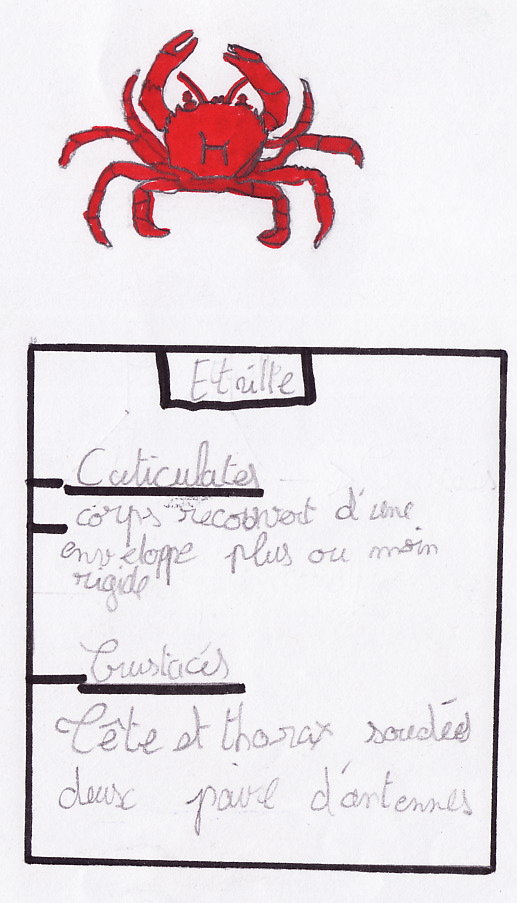 H
Etrille
Cuticulates
corps recouvert d'une
enveloppe plus ou moin
rigide
Crustacés
Tête et thorax soudées
deux paire d'antennes